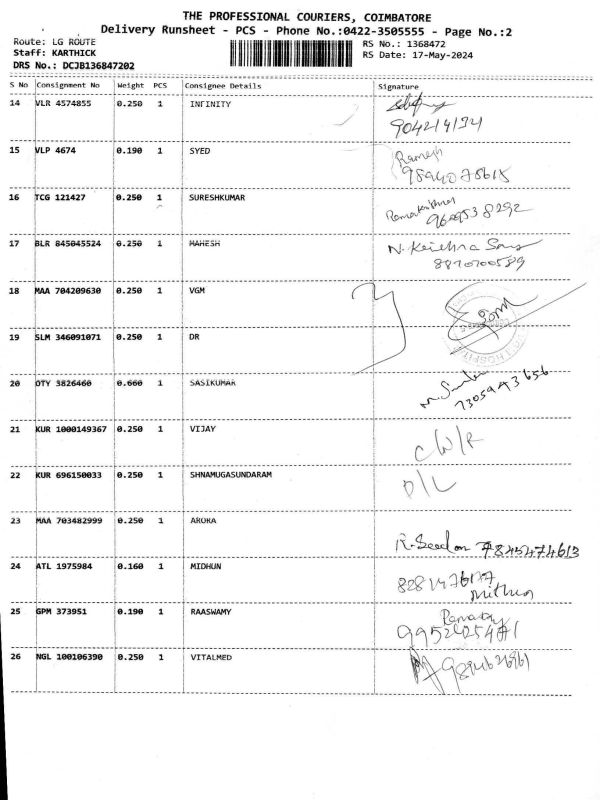 THE PROFESSIONAL COURIERS, COIMBATORE
Delivery Runsheet - PCS - Phone No.:0422-3505555 - Page No.:2
Route: LG ROUTE
RS No.: 1368472
Staff: KARTHICK
RS Date: 17-May-2024
DRS No.: DCJB136847202
S No Consignment No Weight PCS Consignee Details Signature
14 VLR 4574855 0.250 1 INFINITY
904214194
15 VLP 4674 0.190 1 SYED Ramesh
9894078615
16 TCG 121427 0.250 1 SURESHKUMAR
Ramakrishnan
9609538292
17 BLR 845045524 0.250 1 MAHESH
8870700589
18 MAA 704209630 0.250 1 VGM
19 SLM 346091071 0.250 1 DR
20 OTY 3826460 0.660 1 SASIKUMAR
7305943656
21 KUR 1000149367 0.250 1 VIJAY
C/W/R
22 KUR 696150033 0.250 1 SHNAMUGASUNDARAM
D/L
23 MAA 703482999 0.250 1 AROKA
7845474613
24 ATL 1975984 0.160 1 MIDHUN
Mithun
25 GPM 373951 0.190 1 RAASWAMY
26 NGL 100106390 0.250 1 VITALMED
9894626961